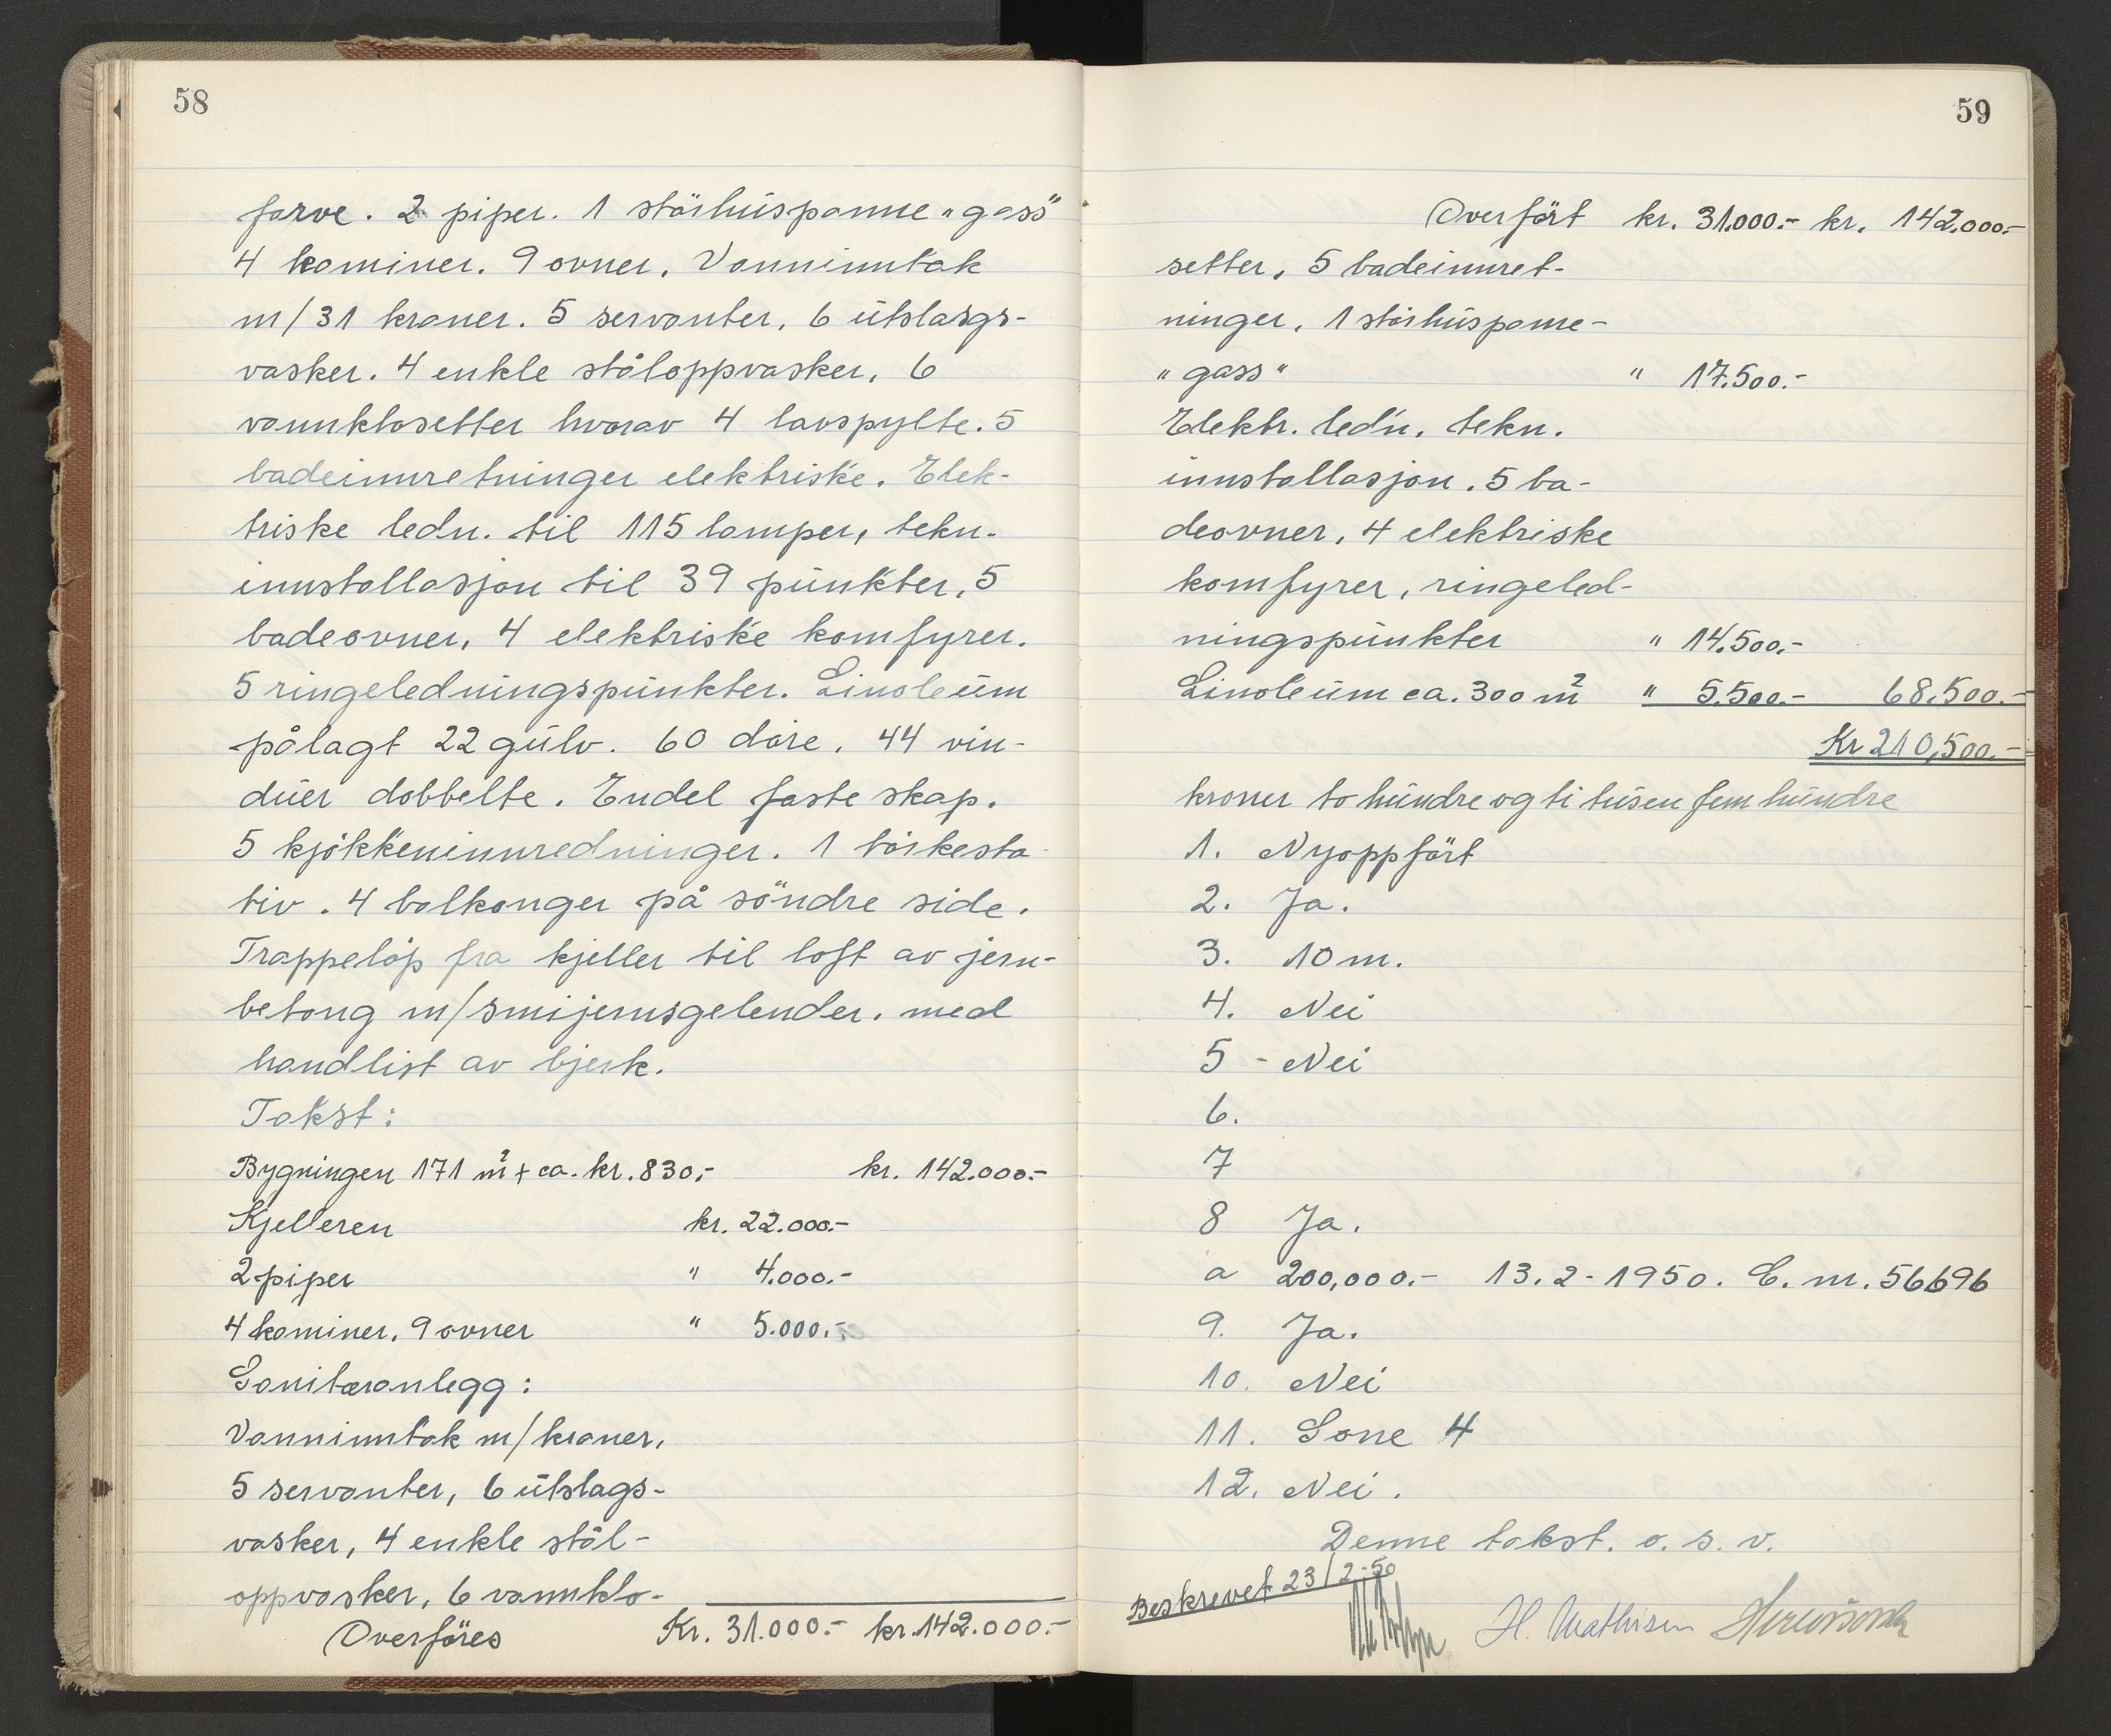 58
farve. 2 piper. 1 störhüspanne "gass"
4 kaminer. 9 ovner, Vanninntak
m/31 kraner. 5 servanter, 6 ütslasgs-
vasker. 4 enkle ståloppvasker, 6
vannklosetter hvorav 4 lavspylte. 5
badeinnretninger elektriske. Elek-
triske ledn. til 115 lamper, tekn.
innstallasjon til 39 pünkter, 5
badeovner, 4 elektriske komfyrer.
5 ringeledningspünkter. Linoleüm
pålagt 22 gülv. 60 döre, 44 vin-
düer dobbelte. Endel faste skap.
5 kjökkeninnredninger. 1 törkesta-
tiv. 4 balkonger på söndre side.
Trappelöp fra kjeller til loft av jern-
betong m/smijernsgelender, med
handlist av bjerk.
Takst:
Bygningen 171 m² + ca. kr. 830,- kr. 142.000.-
Kjelleren kr. 22.000.-
2 piper " 4.000.-
4 kaminer, 9 ovner " 5.000.-
Sanitæranlegg:
Vanninntak m/kraner,
5 servanter, 6 ütslags-
vasker, 4 enkle stål-
oppvasker, 6 vannklo-
Overföres Kr. 31.000.- kr. 142.000.-
59
Overfört kr. 31.000.- kr. 142.000.-
setter, 5 badeinnret-
ninger, 1 störhüspanne-
"gass" " 17.500.-
Elektr. ledn. tekn.
innstallasjon. 5 ba-
deovner, 4 elektriske
komfyrer, ringeled-
ningspünkter " 14.500.-
Linoleüm ca. 300 m² " 5.500.- 68.500.-
Kr 210,500.-
kroner to hündre og ti tüsen fem hündre
1. Nyoppfört
2. Ja.
3. 10 m.
4. Nei
5 - Nei
6.
7
8 Ja.
a 200,000.- 13.2-1950. E. nr. 56696
9. Ja.
10. Nei
11. Sone 4
12. Nei.
Denne takst. o. s. v.
Beskrevet 23/2-50
H. Mathisen